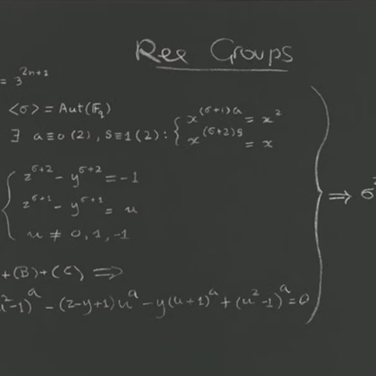 Ree Groups
= 3^{2n+1}
⟨σ⟩ = Aut(𝔽_q)
∃ a≡0(2), s≡1(2): { x^{(σ+1)a} = x^2
x^{(σ+2)s} = x
{ z^{σ+2} - y^{σ+2} = -1
z^{σ+1} - y^{σ+1} = u
u ≠ 0, 1, -1
+(B)+(C) ⟹
u^2-1)^a - (z-y+1)u^a - y(u+1)^a + (u^2-1)^a = 0
⟹ σ